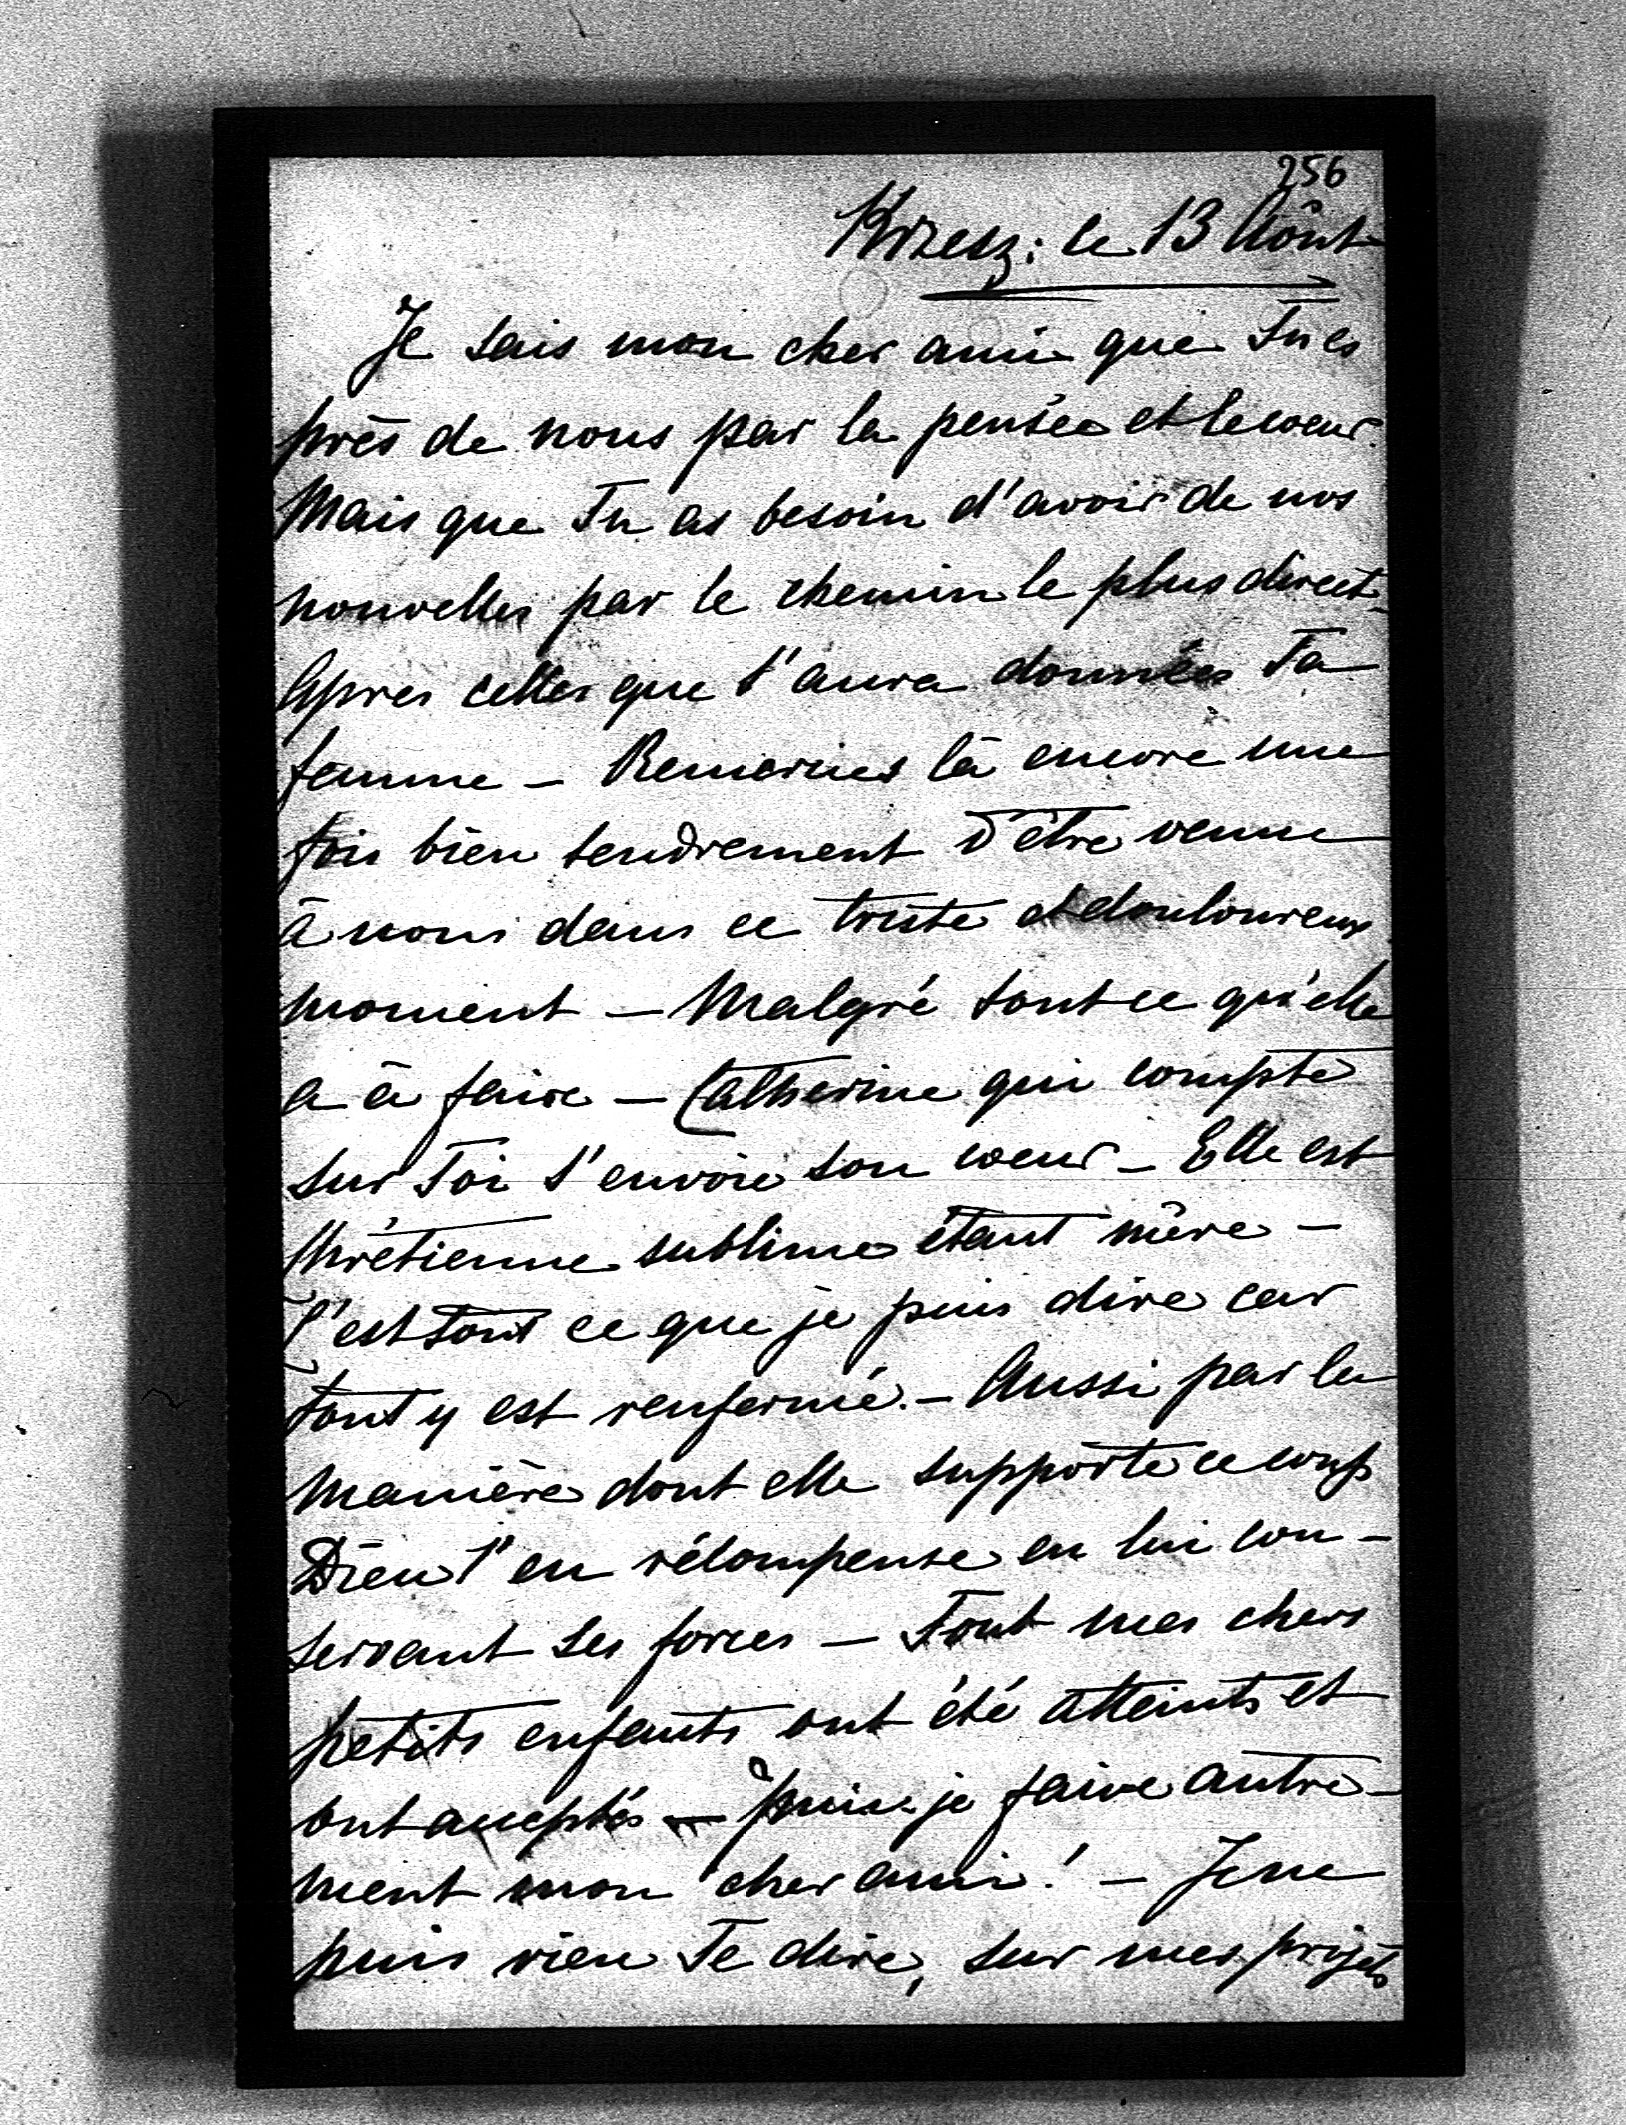 256
Krzesz: le 13 Aôut
Je sais mon cher ami que Tu es
près de nous par la pensée et le coeur.
Mais que Tu as besoin d'avoir de nos
nouvelles par le chemin le plus direct_
Apres celles que t'aura données Ta
femme — Remercies là encore une
fois bien tendrement d'être venue
à nous dans ce triste et douloureux
moment — Malgré tout ce qu'elle
a à faire — Catherine qui compte
sur Toi t'envoie son coeur — Elle est
Chrétienne sublime étant mère —
C'est tout ce que je puis dire car
tout y est renfermé. — Aussi par la
manière dont elle supporte ce coup
Dieu l'en récompense en lui con-
servant ses forces — Tout mes chers
petits enfants ont été atteints et
ont acceptés — puis-je faire autre-
ment mon cher ami! — Je ne
puis rien Te dire, sur mes projets